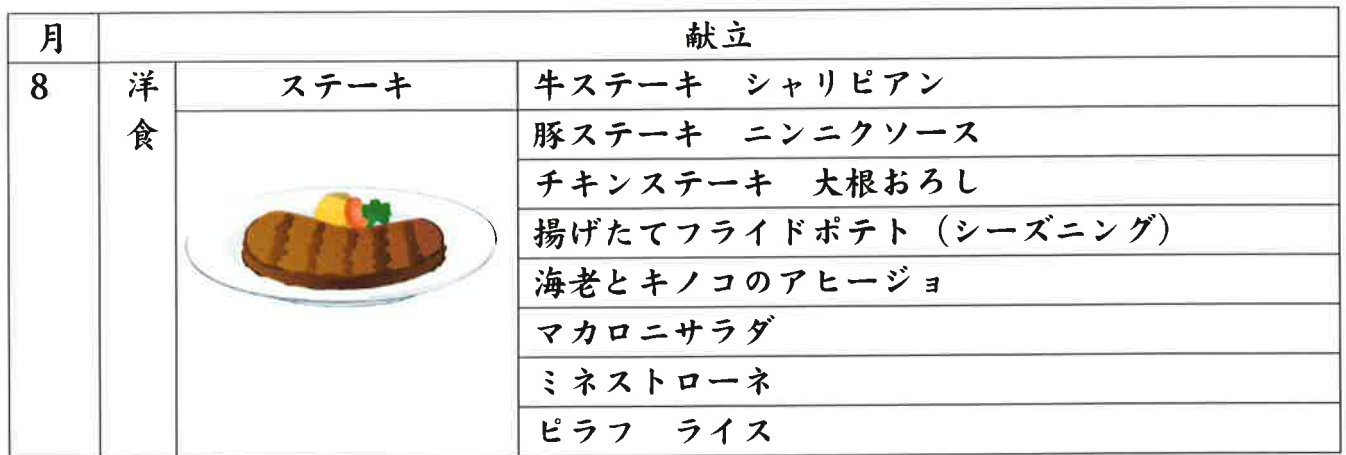 月 献立
8 洋食 ステーキ 牛ステーキ シャリピアン
豚ステーキ ニンニクソース
チキンステーキ 大根おろし
揚げたてフライドポテト（シーズニング）
海老とキノコのアヒージョ
マカロニサラダ
ミネストローネ
ピラフ ライス